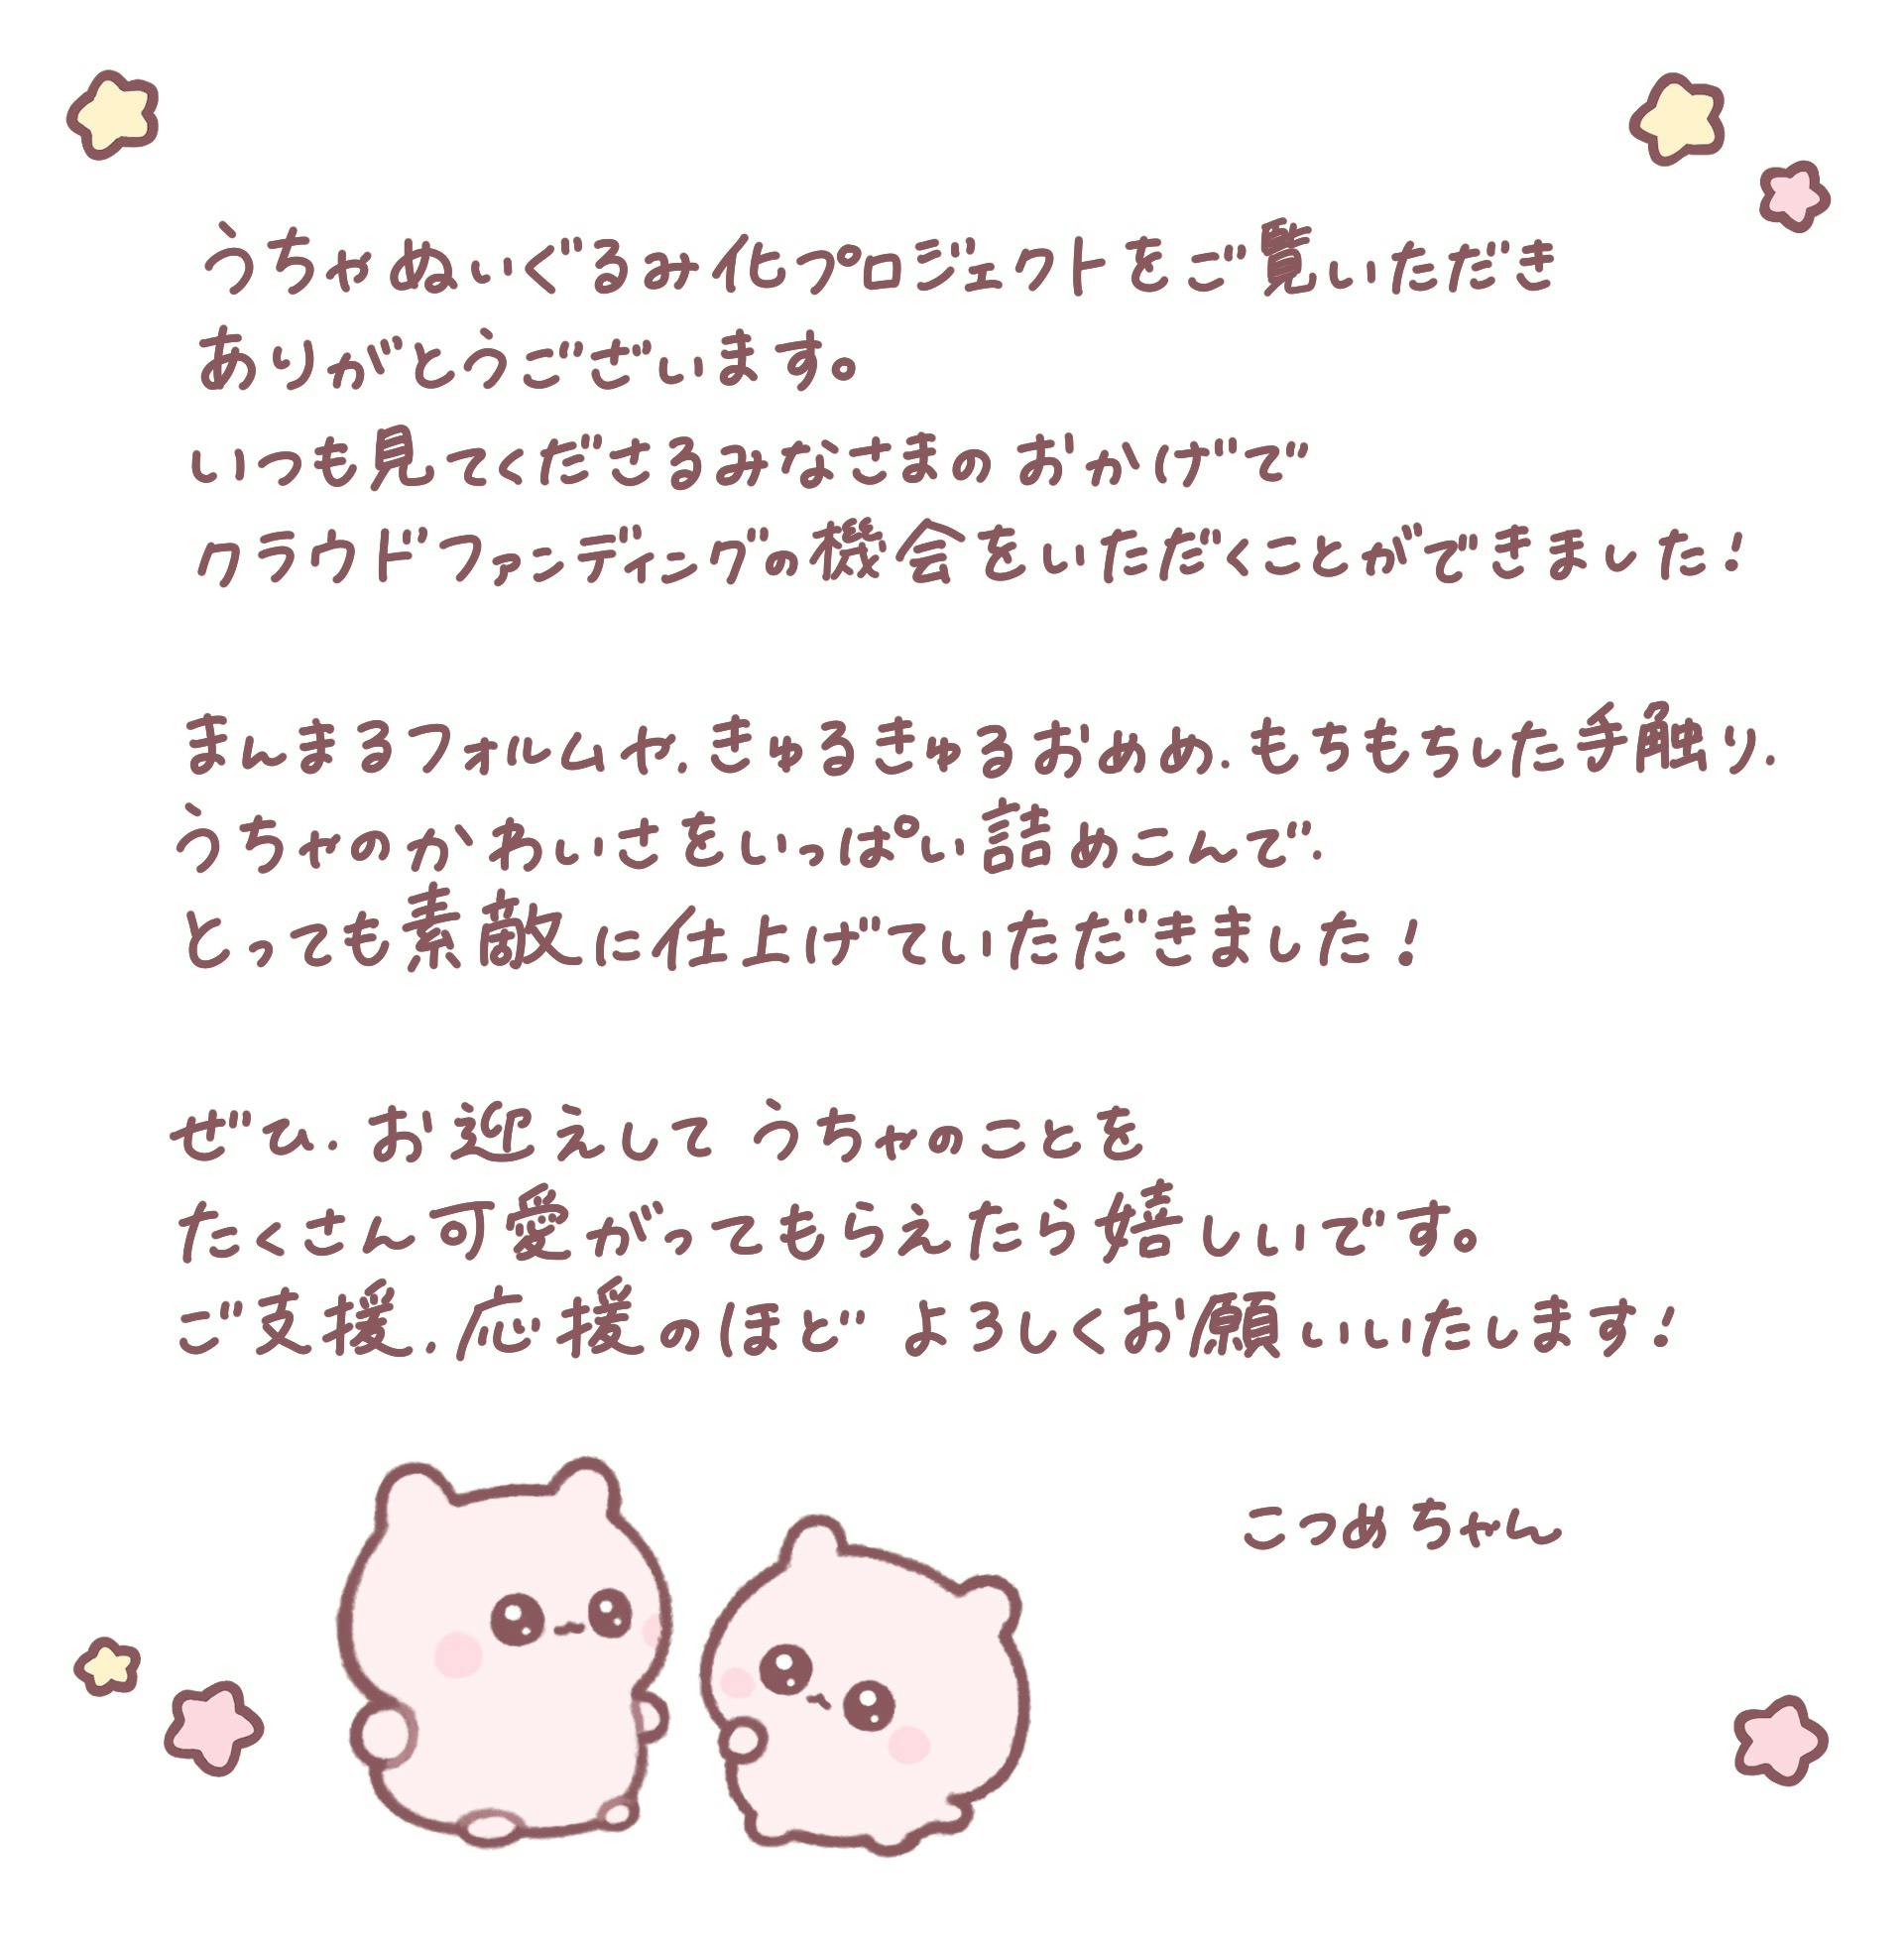 うちゃぬいぐるみ化プロジェクトをご覧いただき
ありがとうございます。
いつも見てくださるみなさまのおかげで
クラウドファンディングの機会をいただくことができました!
まんまるフォルムや、きゅるきゅるおめめ、もちもちした手触り、
うちゃのかわいさをいっぱい詰めこんで、
とっても素敵に仕上げていただきました!
ぜひ、お迎えして うちゃのことを
たくさん可愛がってもらえたら嬉しいです。
ご支援、応援のほど よろしくお願いいたします!
こつめちゃん